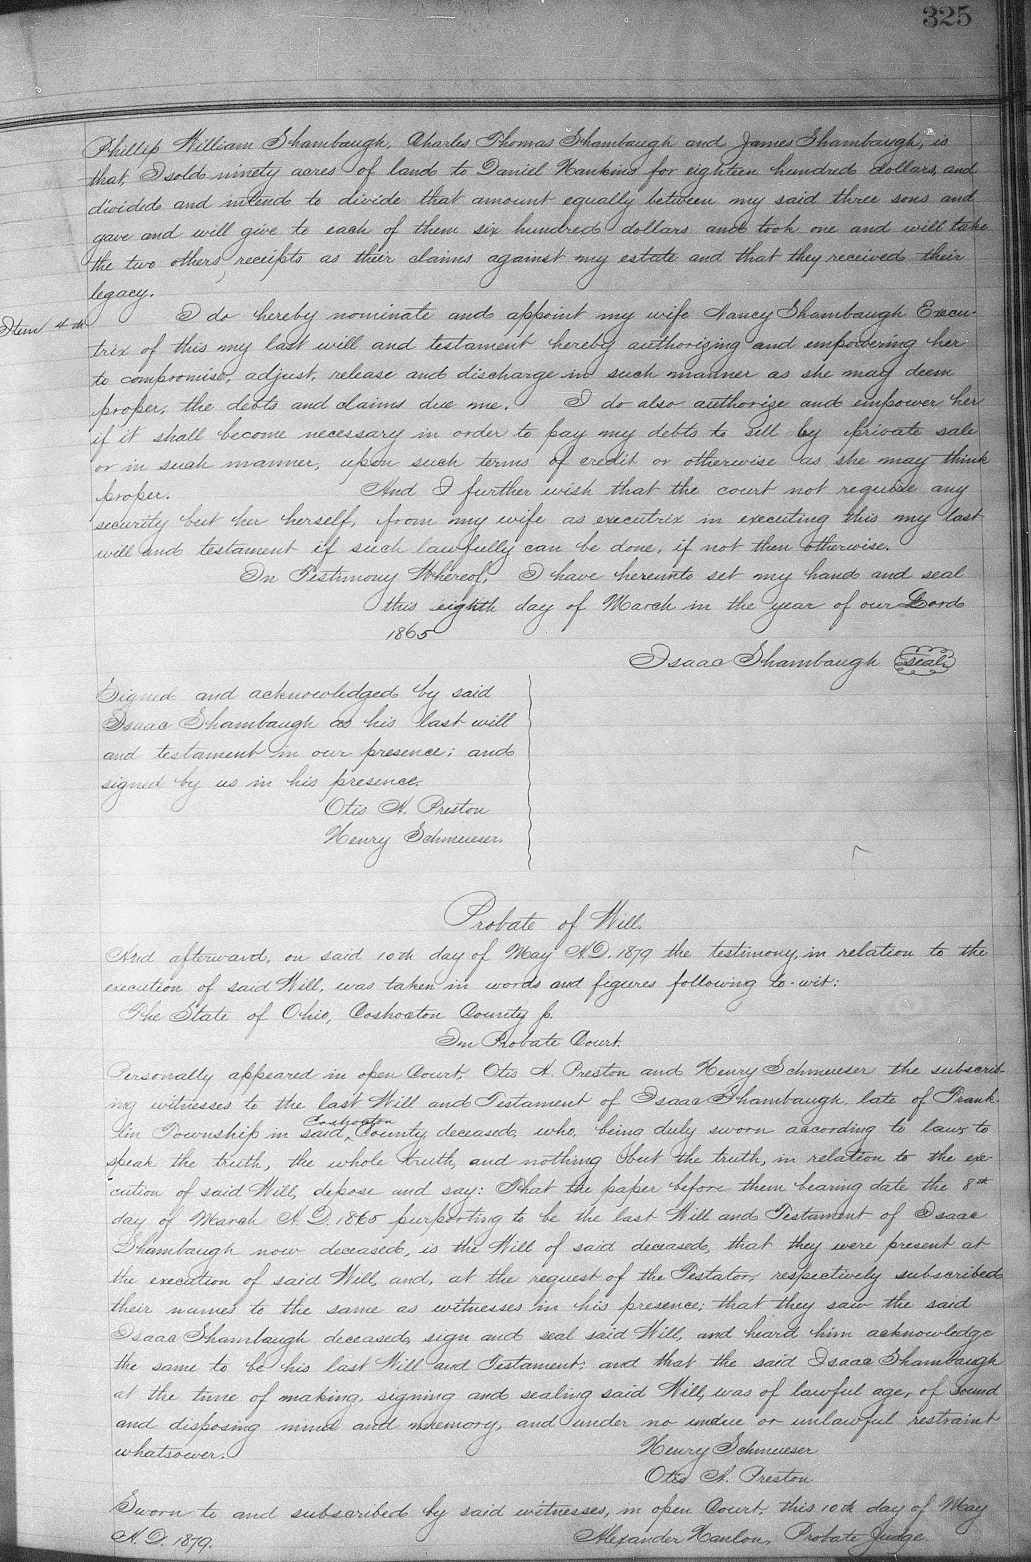 325
Phillip William Shambaugh, Charles Thomas Shambaugh and James Shambaugh, is
that, I sold ninety acres of land to Daniel Hankins for eighteen hundred dollars, and
divided and intend to divide that amount equally between my said three sons and
gave and will give to each of them six hundred dollars and took one and will take
the two others receipts as their claims against my estate and that they received their
legacy.
Item 4th I do hereby nominate and appoint my wife Nancy Shambaugh Execu-
trix of this my last will and testament hereby authorizing and empowering her
to compromise, adjust, release and discharge in such manner as she may deem
proper, the debts and claims due me. I do also authorize and empower her
if it shall become necessary in order to pay my debts to sell by private sale
or in such manner, upon such terms of credit or otherwise as she may think
proper. And I further wish that the court not require any
security but her herself, from my wife as executrix in executing this my last
will and testament if such lawfully can be done, if not then otherwise.
In Testimony Whereof, I have hereunto set my hand and seal
this eighth day of March in the year of our Lord
1865
Isaac Shambaugh seal
Signed and acknowledged by said
Isaac Shambaugh as his last will
and testament in our presence; and
signed by us in his presence.
Otis A. Preston
Henry Schmueser.
Probate of Will.
And afterward, on said 10th day of May A.D. 1879 the testimony, in relation to the
execution of said Will, was taken in words and figures following to-wit:
The State of Ohio, Coshocton County
In Probate Court.
Personally appeared in open Court, Otis A. Preston and Henry Schmueser the subscrib-
ing witnesses to the last Will and Testament of Isaac Shambaugh late of Frank-
lin Township in said Coshocton County, deceased, who, being duly sworn according to law, to
speak the truth, the whole truth, and nothing but the truth, in relation to the exe-
cution of said Will, depose and say: That the paper before them bearing date the 8th
day of March A.D. 1865 purporting to be the last Will and Testament of Isaac
Shambaugh now deceased, is the Will of said deceased, that they were present at
the execution of said Will, and, at the request of the Testator, respectively subscribed
their names to the same as witnesses in his presence; that they saw the said
Isaac Shambaugh deceased, sign and seal said Will, and heard him acknowledge
the same to be his last Will and Testament; and that the said Isaac Shambaugh
at the time of making, signing and sealing said Will, was of lawful age, of sound
and disposing mind and memory, and under no undue or unlawful restraint
whatsoever.
Henry Schmueser
Otis A. Preston
Sworn to and subscribed by said witnesses, in open Court, this 10th day of May
A.D. 1879. Alexander Hanlon, Probate Judge.